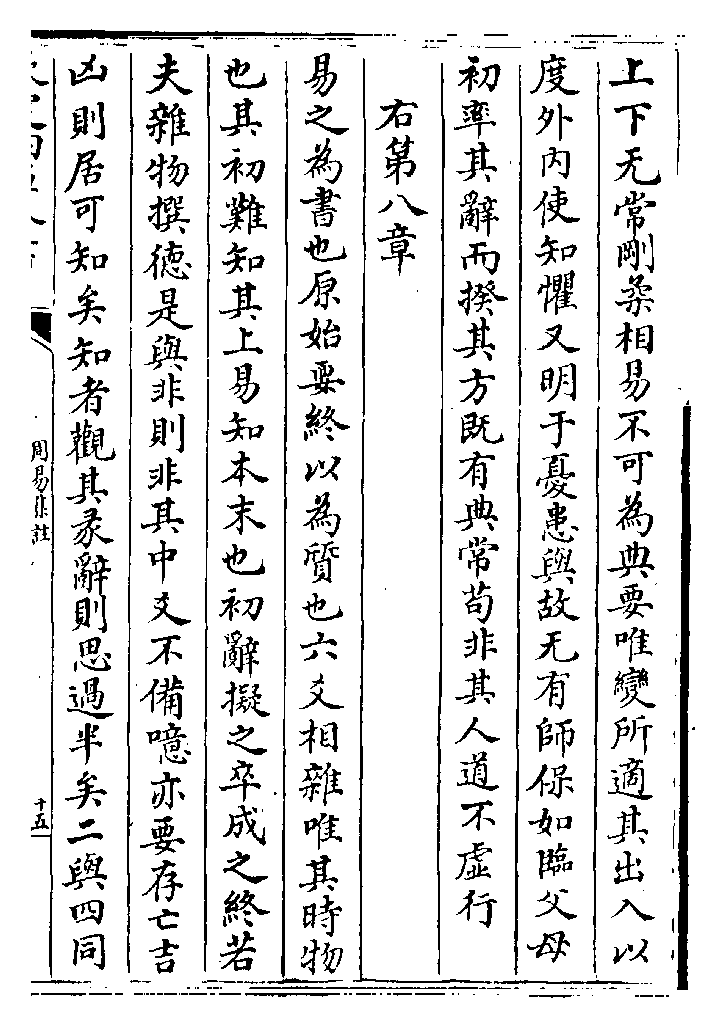 上下无常剛柔相易不可為典要唯變所適其出入以
度外内使知懼又明于憂患與故无有師保如臨父母
初率其辭而揆其方既有典常苟非其人道不虚行
右第八章
易之為書也原始要終以為質也六爻相雜唯其時物
也其初難知其上易知本末也初辭擬之卒成之終若
夫雜物撰德是與非則非其中爻不備噫亦要存亡吉
凶則居可知矣知者觀其彖辭則思過半矣二與四同
周易集註
十五